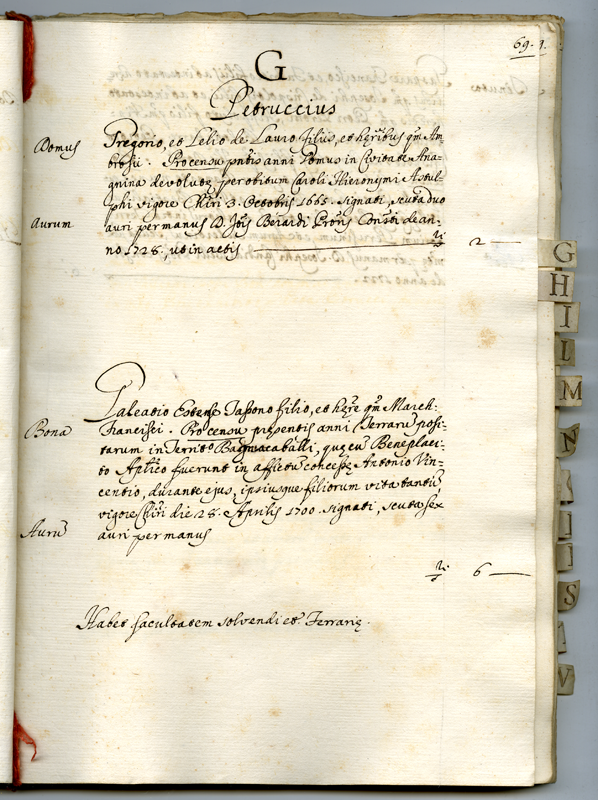 69. 9.
G
Petruccius
Domus
Gregorio, et Lelio de Lauro filius, et hęribus qm Am=
brosii. Pro censu pntis anni Domus in Civitate Ana=
gnina devolutę per obitum Caroli Hieronymi Astul=
phi vigore Chiri 3. Octobris 1665. signati, scuta duo
Aurum
auri per manus D. Jois Berardi
no 1728. ut in actis
2
Galeatio Estense Tassono filio, et hęre qm March:
Bona
Francisci. Pro censu pręsentis anni Terraru posi=
tarum in Territo Bagnacaballi, quę cu Beneplaci=
to Aplico fuerunt in affictu concessę Antonio Vin=
centio, durante ejus, ipsiusque filiorum vita tantu
vigore Chiri die 28. Aprilis 1700. signati, scuta sex
Auru
auri per manus
6
Habet facultatem solvendi et Ferrarię.
G
H
I
L
M
N
S
V